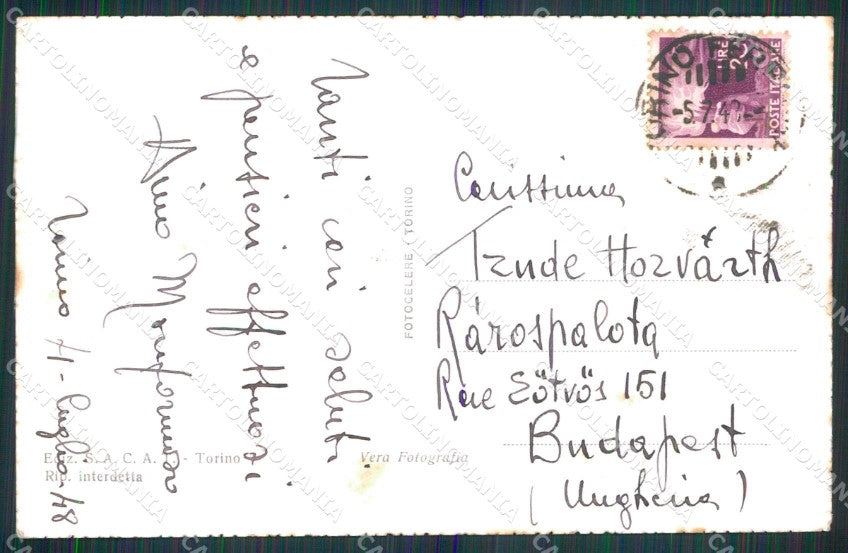 Tanti cari saluti
e pensieri affettuosi
Nino
Torino 4-luglio-48
Ediz. S. A. C. A. T. - Torino
Rip. interdetta
Vera Fotografia
FOTOCELERE - TORINO
LIRE 20
POSTE ITALIANE
TORINO FERR
-5.7.48
Carissima
Trude Horvárth
Rárospalota
Rue Eötvös 151
Budapest
(Ungheria)
CARTOLINOMANIA